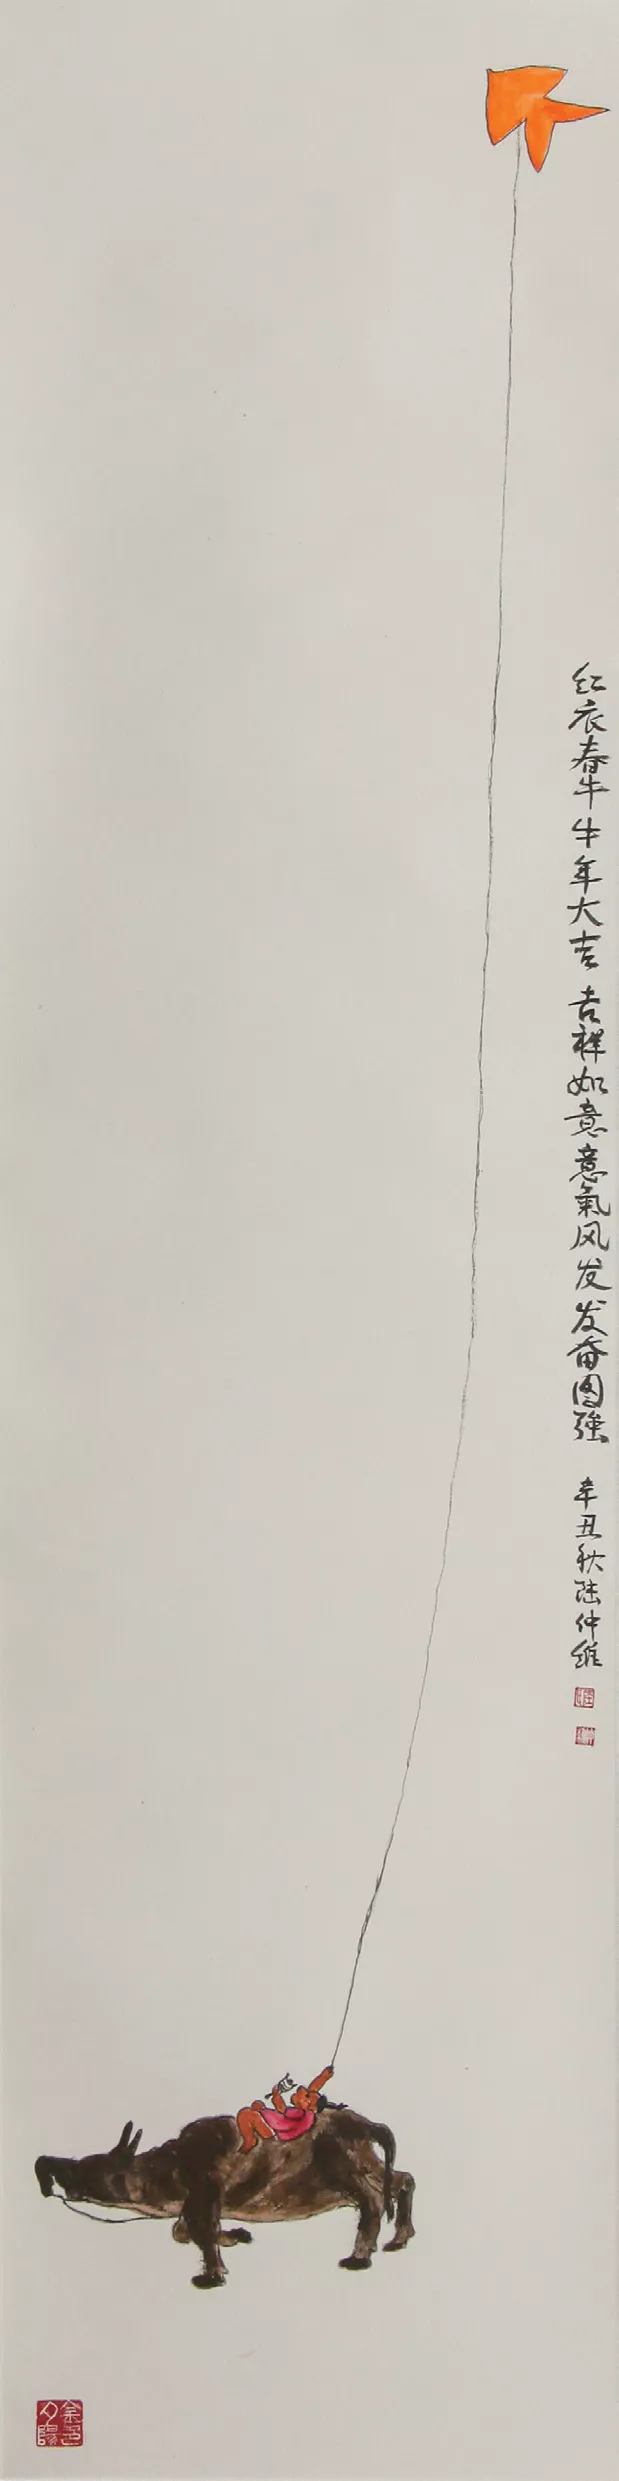 红衣春牛牛年大吉吉祥如意意氣风发发奋图強 辛丑秋陆仲维
金色夕陽